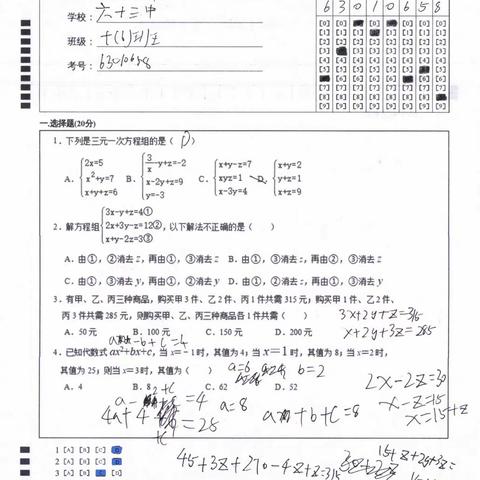 学校：六十三中
班级：十(6)班
考号：63010658
6 3 0 1 0 6 5 8
一.选择题(20分)
1．下列是三元一次方程组的是（ D ）
A． 2x=5 x²+y=7 x+y+z=6 B． 3/x-y+z=-2 x-2y+z=9 y=-3 C． x+y-z=7 xyz=1 x-3y=4 D． x+y=2 y+z=1 x+z=9
2．解方程组 3x-y+z=4① 2x+3y-z=12② x+y-2z=3③，以下解法不正确的是（ ）
A．由①，②消去z，再由①，③消去z B．由①，③消去z，再由②，③消去z
C．由①，③消去y，再由①，②消去y D．由①，②消去z，再由①，③消去y
3．有甲、乙、丙三种商品，购买甲3件、乙2件、丙1件共需315元；购买甲1件、乙2件、
丙3件共需285元，则购买甲、乙、丙三种商品各1件共需（ ） 3x+2y+z=315
A．50元 B．100元 C．150元 D．200元 x+2y+3z=285
-b+c=4
4．已知代数式ax²+bx+c，当x=-1时，其值为4；当x=1时，其值为8；当x=2时，
其值为25；则当x=3时，其值为（ ） a=6 b=2
A．4 B．8 C．62 D．52
2x-2z=30
x-z=15
x=15+z
a=8
a+b+c=8
1 [A] [B] [C]
2 [A] [B] [C]
3 [A] [B]
45+3z+270-4z+z=315